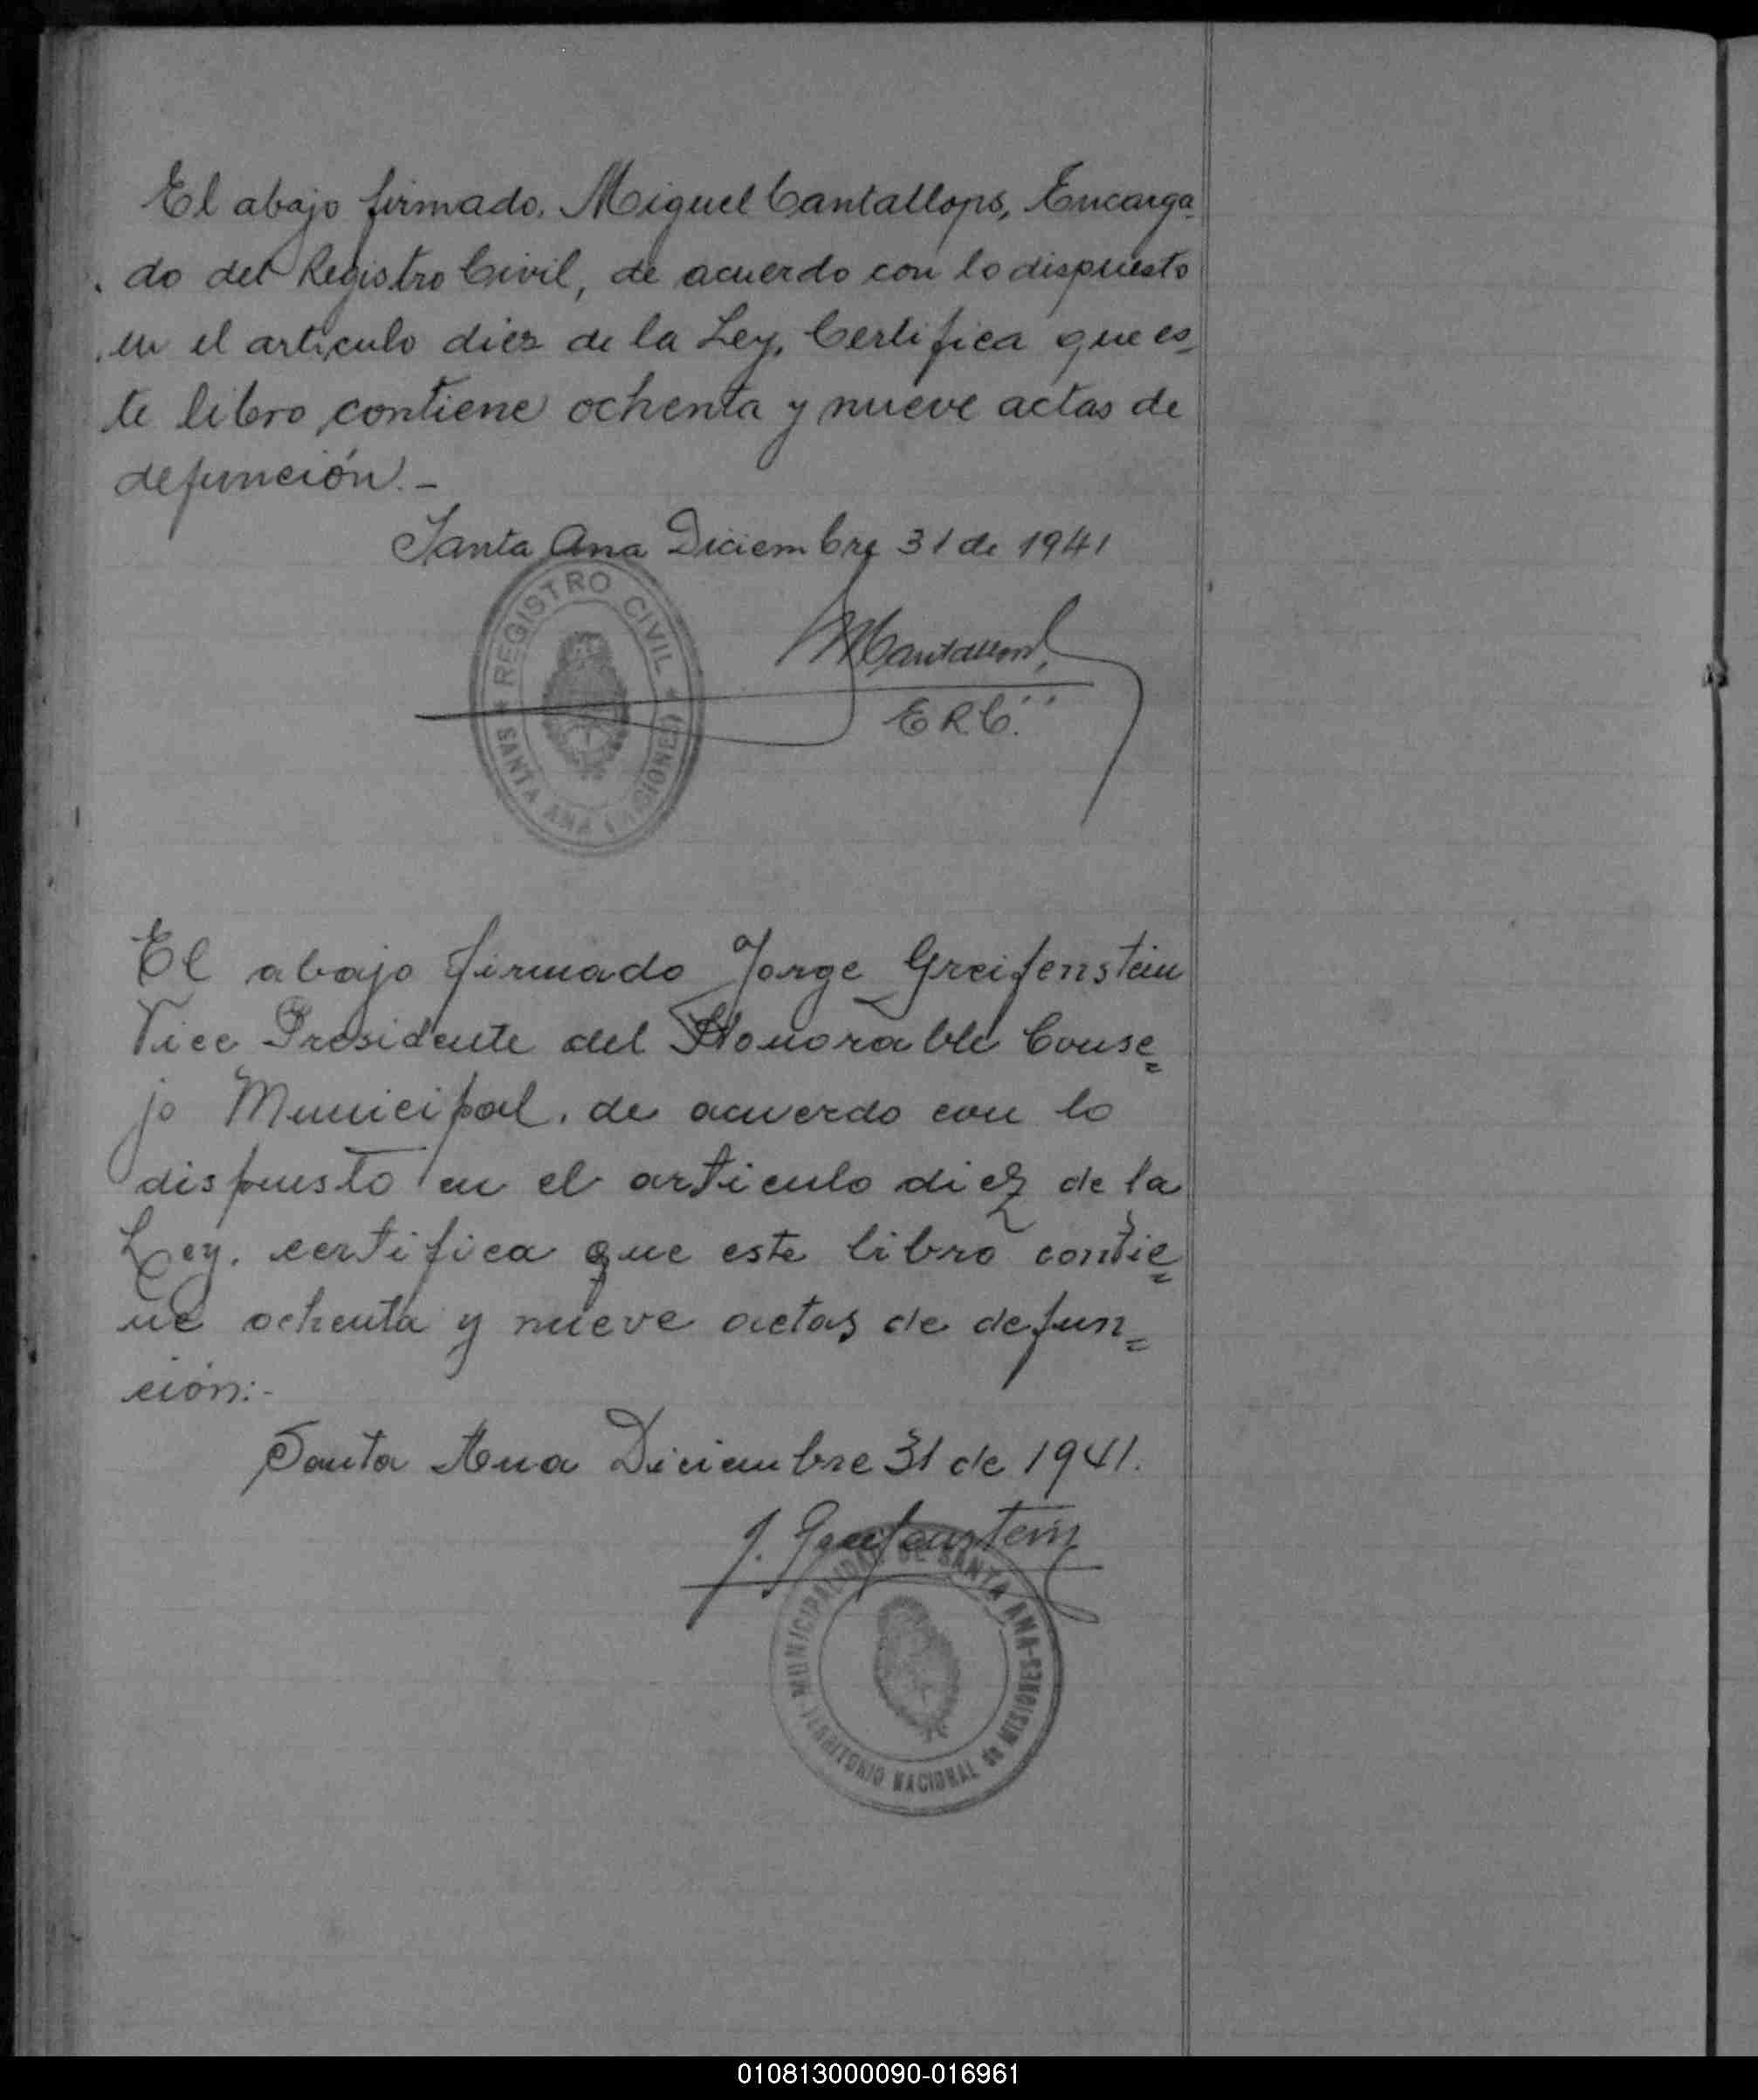 El abajo firmado, Miguel Cantallops, Encarga-
do del Registro Civil, de acuerdo con lo dispuesto
en el artículo diez de la Ley, Certifica que es-
te libro contiene ochenta y nueve actas de
defunción.-
Santa Ana Diciembre 31 de 1941
REGISTRO CIVIL
SANTA ANA (MISIONES)
MCantallops
E.R.C.
El abajo firmado Jorge Greifenstein
Vice Presidente del Honorable Conse=
jo Municipal, de acuerdo con lo
dispuesto en el articulo diez de la
Ley, certifica que este libro contie=
ne ochenta y nueve actas de defun=
ción:-
Santa Ana Diciembre 31 de 1941.
J. Greifenstein
MUNICIPALIDAD DE SANTA ANA-MISIONES
TERRITORIO NACIONAL de
010813000090-016961